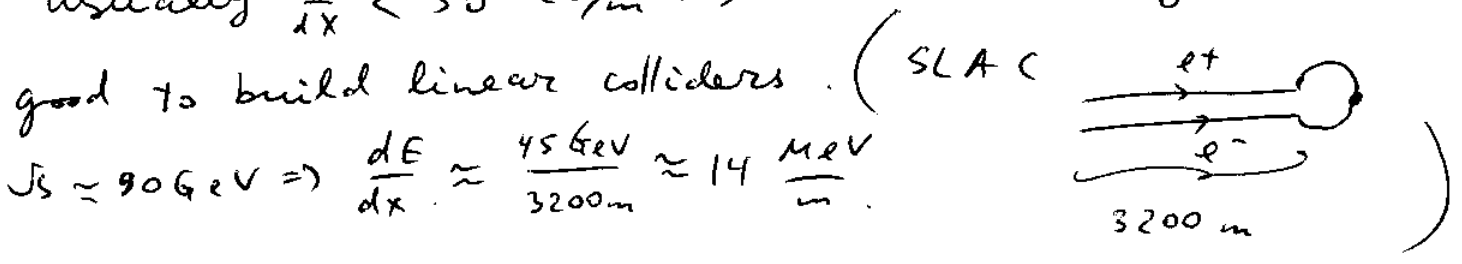 usually dE/dx <
good to build linear colliders. (SLAC e+
√s ≃ 90 GeV => dE/dx ≈ 45 GeV/3200m ≈ 14 MeV/m. e-
3200 m )